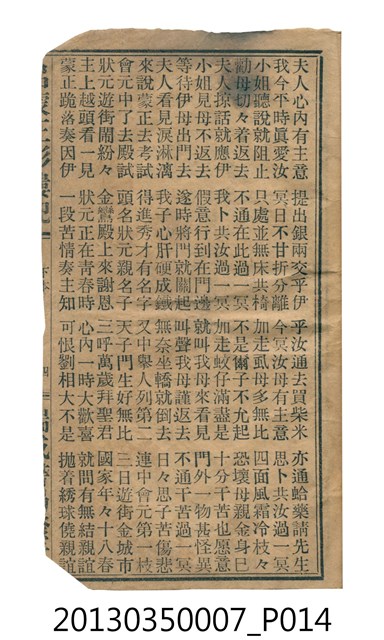 夫人心內有主意　提出銀兩交乎伊　乎汝通去買柴米　亦通蛤藥請先生
我今平時真愛汝　冥日不甘折分離　今冥汝母有主意　思卜共汝過一冥
小姐聽說就阻止　只處並無床共椅　加走虱母多無比　四面風霜冷枝々
勸母切々着返去　不通在此過一冥　不是㑑子不允起　恐壞母親金身巳
夫人掠話就應伊　我卜共汝過一冥　加走蚊仔滿盡是　十分干苦也愿意
小姐見母不返去　假意行到在門邊　就叫我母來看見　門外一物甚怪異
等待伊母出門去　遂時將門就關起　叫聲我母謹返去　不通干苦過一冥
夫人看見淚淋漓　我子心肝硬成鐵　無奈坐轎就倒去　日々思子苦傷悲
來說蒙正去考試　得進秀才有名字　又中舉人列第二　連中會元第一枝
會元中了去殿試　頭名狀元親名子　天子門生好無比　三日遊街金城市
狀元遊街鬧紛々　金鸞殿上來謝恩　三呼萬歲拜聖君　國家年々十八春
主上越頭看一見　狀元正在青春時　心內一時大歡喜　就問有無結親誼
蒙正跪落奏因伊　一段苦情奏主知　可恨劉相大不是　拋着綉球僥親誼
下本
四
20130350007_P014